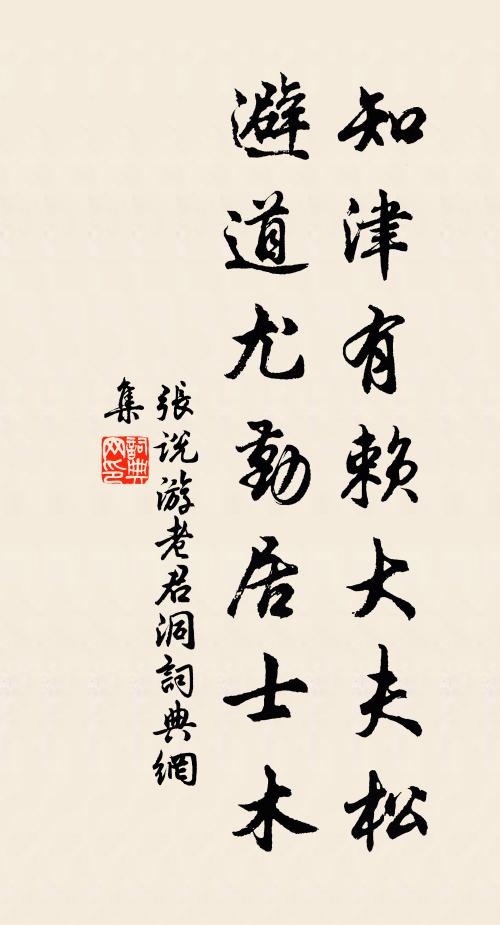 知津有賴大夫松
避道尤勤居士木
張说游老君洞詞典網
集
詞典网印